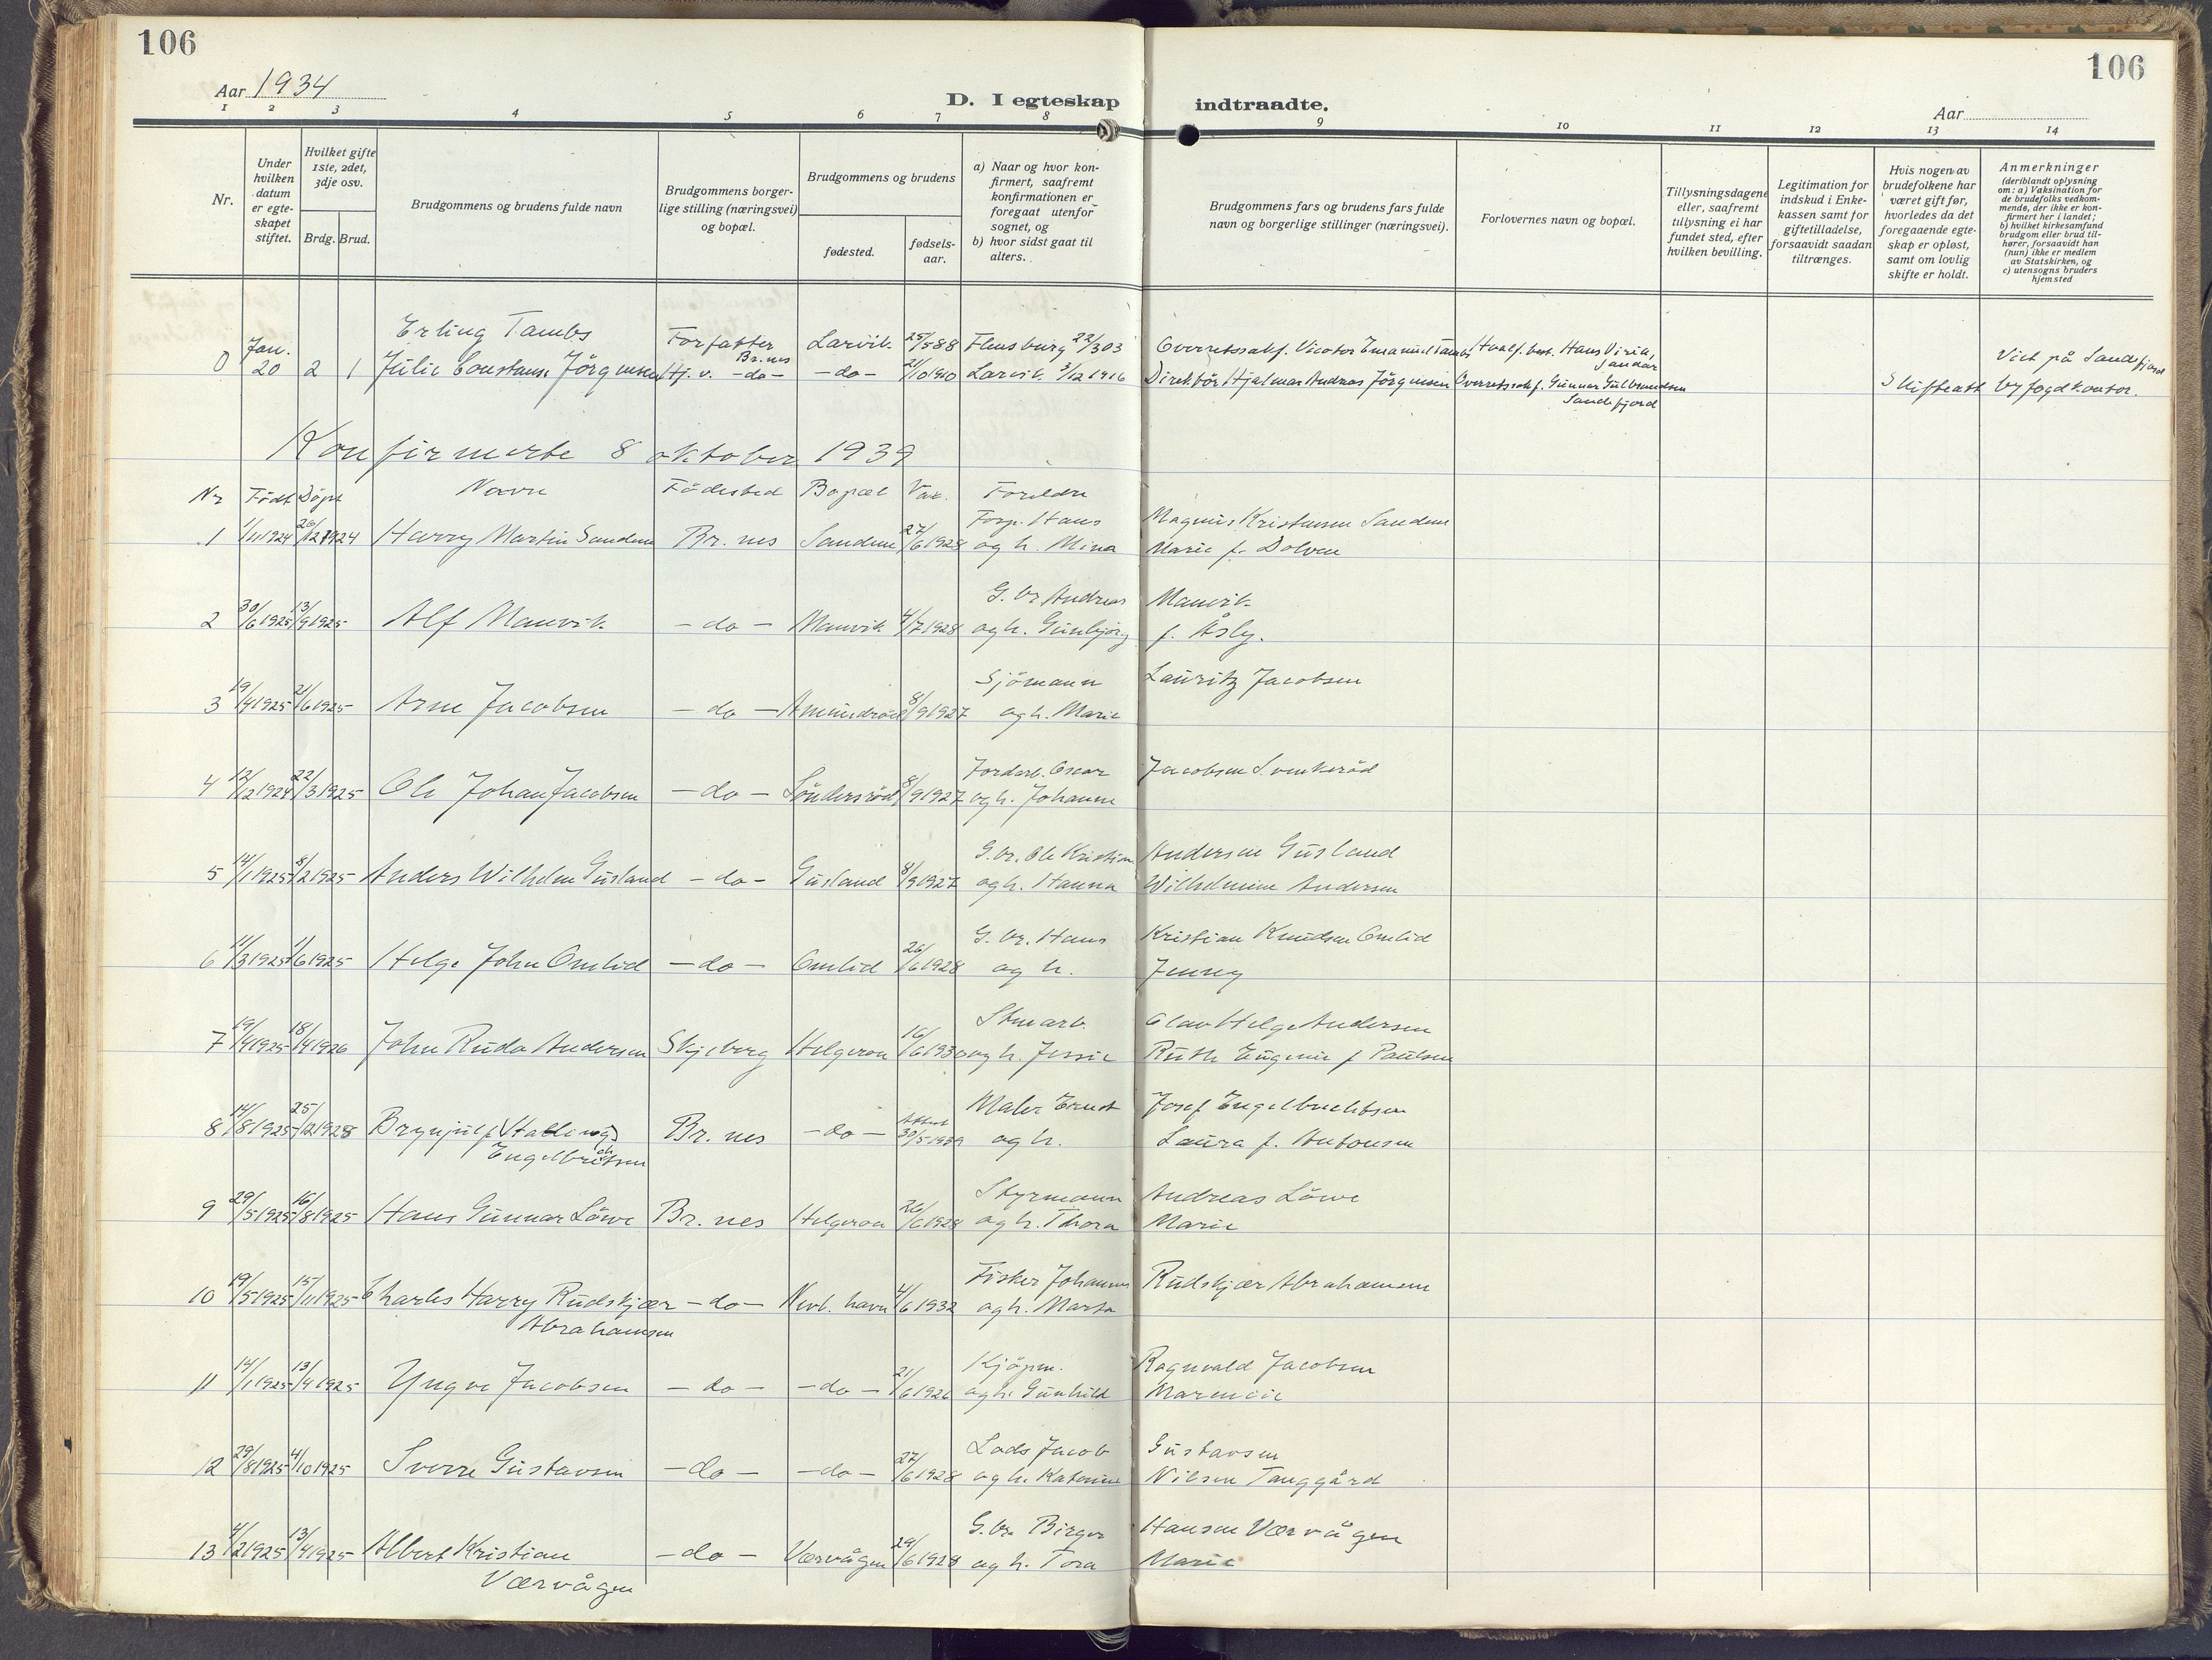 106
106
Aar 1934
D. I egteskap indtraadte.
Aar
1 2 3 4 5 6 7 8 9 10 11 12 13 14
Nr.
Under hvilken datum er egteskapet stiftet.
Hvilket gifte 1ste, 2det, 3dje osv.
Brdg. Brud.
Brudgommens og brudens fulde navn
Brudgommens borgerlige stilling (næringsvei) og bopæl.
Brudgommens og brudens
fødested.
fødselsaar.
a) Naar og hvor konfirmert, saafremt konfirmationen er foregaat utenfor sognet, og
b) hvor sidst gaat til alters.
Brudgommens fars og brudens fars fulde navn og borgerlige stillinger (næringsvei).
Forlovernes navn og bopæl.
Tillysningsdagene eller, saafremt tillysning ei har fundet sted, efter hvilken bevilling.
Legitimation for indskud i Enkekassen samt for giftetilladelse, forsaavidt saadan tiltrænges.
Hvis nogen av brudefolkene har været gift før, hvorledes da det foregaaende egteskap er opløst, samt om lovlig skifte er holdt.
Anmerkninger
(deriblandt oplysning om: a) Vaksination for de brudefolks vedkommende, der ikke er konfirmert her i landet; b) hvilket kirkesamfund brudgom eller brud tilhører, forsaavidt han (hun) ikke er medlem av Statskirken, og c) utensogns bruders hjemsted
Erling Tambs Forfatter Br.nes Larvik 25/5 88 Flensburg 22/3 03 Overretssakf. Victor Emanuel Tambs Hvalf. best. Hans Virik, Sandar
0 Jan. 20 2 1 Julie Constanse Jörgensen Hj. v. -do- -do- 21/10 1910 Larvik 3/12 1916 Direktör Hjalmar Andreas Jörgensen Overretssakf. Gunnar Gulbrandsen Sandefjord Skifteatt Viet på Sandefjord byfogdkontor.
Konfirmerte 8 oktober 1939
Nr Födt Döpt Navn Födested Bopæl Vak. Foreldre
1 1/11 1924 26/12 1924 Harry Martin Sandene Br. nes Sandene 27/6 1928 Forp. Hans Magnus Kristensen Sandene
og h. Mina Marie f. Dolven
2 30/6 1925 13/9 1925 Alf Manvik - do - Manvik 4/7 1928 G. br Andreas Manvik
og h. Gunbjörg f. Åsly.
3 19/4 1925 21/6 1925 Arne Jacobsen - do - Amundröd 8/9 1927 Sjömann Lauritz Jacobsen
og h. Marie
4 12/12 1924 22/3 1925 Ole Johan Jacobsen - do - Söndersröd 8/9 1927 Jordarb. Oscar Jacobsen
og h. Johanne
5 14/1 1925 8/2 1925 Anders Wilhelm Gusland - do - Gusland 8/9 1927 G. br. Ole Kristian Andersen Gusland
og h. Hanna Wilhelmine Andersen
6 11/3 1925 1/6 1925 Helge John Omlid - do - Omlid 26/6 1928 G. br. Hans Kristian Knudsen Omlid
og h. Jenny
7 19/4 1925 18/4 1926 John Rudo Andersen Skjeberg Helgeroa 16/6 1930 Stenarb. Olav Helge Andersen
og h. Jessie Ruth Eugenie f Paulsen
8 14/8 1925 25/12 1928 Brynjulf Hallings Engelbretsen Br. nes - do - Attest 30/5 1939 Maler Ernst Josef Engelbrechtsen
og h. Laura f. Antonsen
9 29/5 1925 16/8 1925 Hans Gunnar Löwe Br. nes Helgeroa 26/6 1928 Styrmann Andreas Löwe
og h. Thora Marie
10 19/5 1925 15/11 1925 Charles Harry Rudskjær Abrahamsen - do - Nevl. havn 4/6 1932 Fisker Johannes Rudskjær Abrahamsen
og h. Marta
11 14/1 1925 13/4 1925 Yngve Jacobsen - do - - do - 21/6 1926 Kjöpm. Ragnvald Jacobsen
og h. Gunhild
12 29/8 1925 4/10 1925 Sverre Gustavsen - do - - do - 27/6 1928 Lods Jacob Gustavsen
og h. Katarine Nilsen Tanggård
13 4/2 1925 13/4 1925 Albert Kristian Værvågen - do - Værvågen 29/6 1928 G. br. Birger Hansen Værvågen
og h. Tora Marie